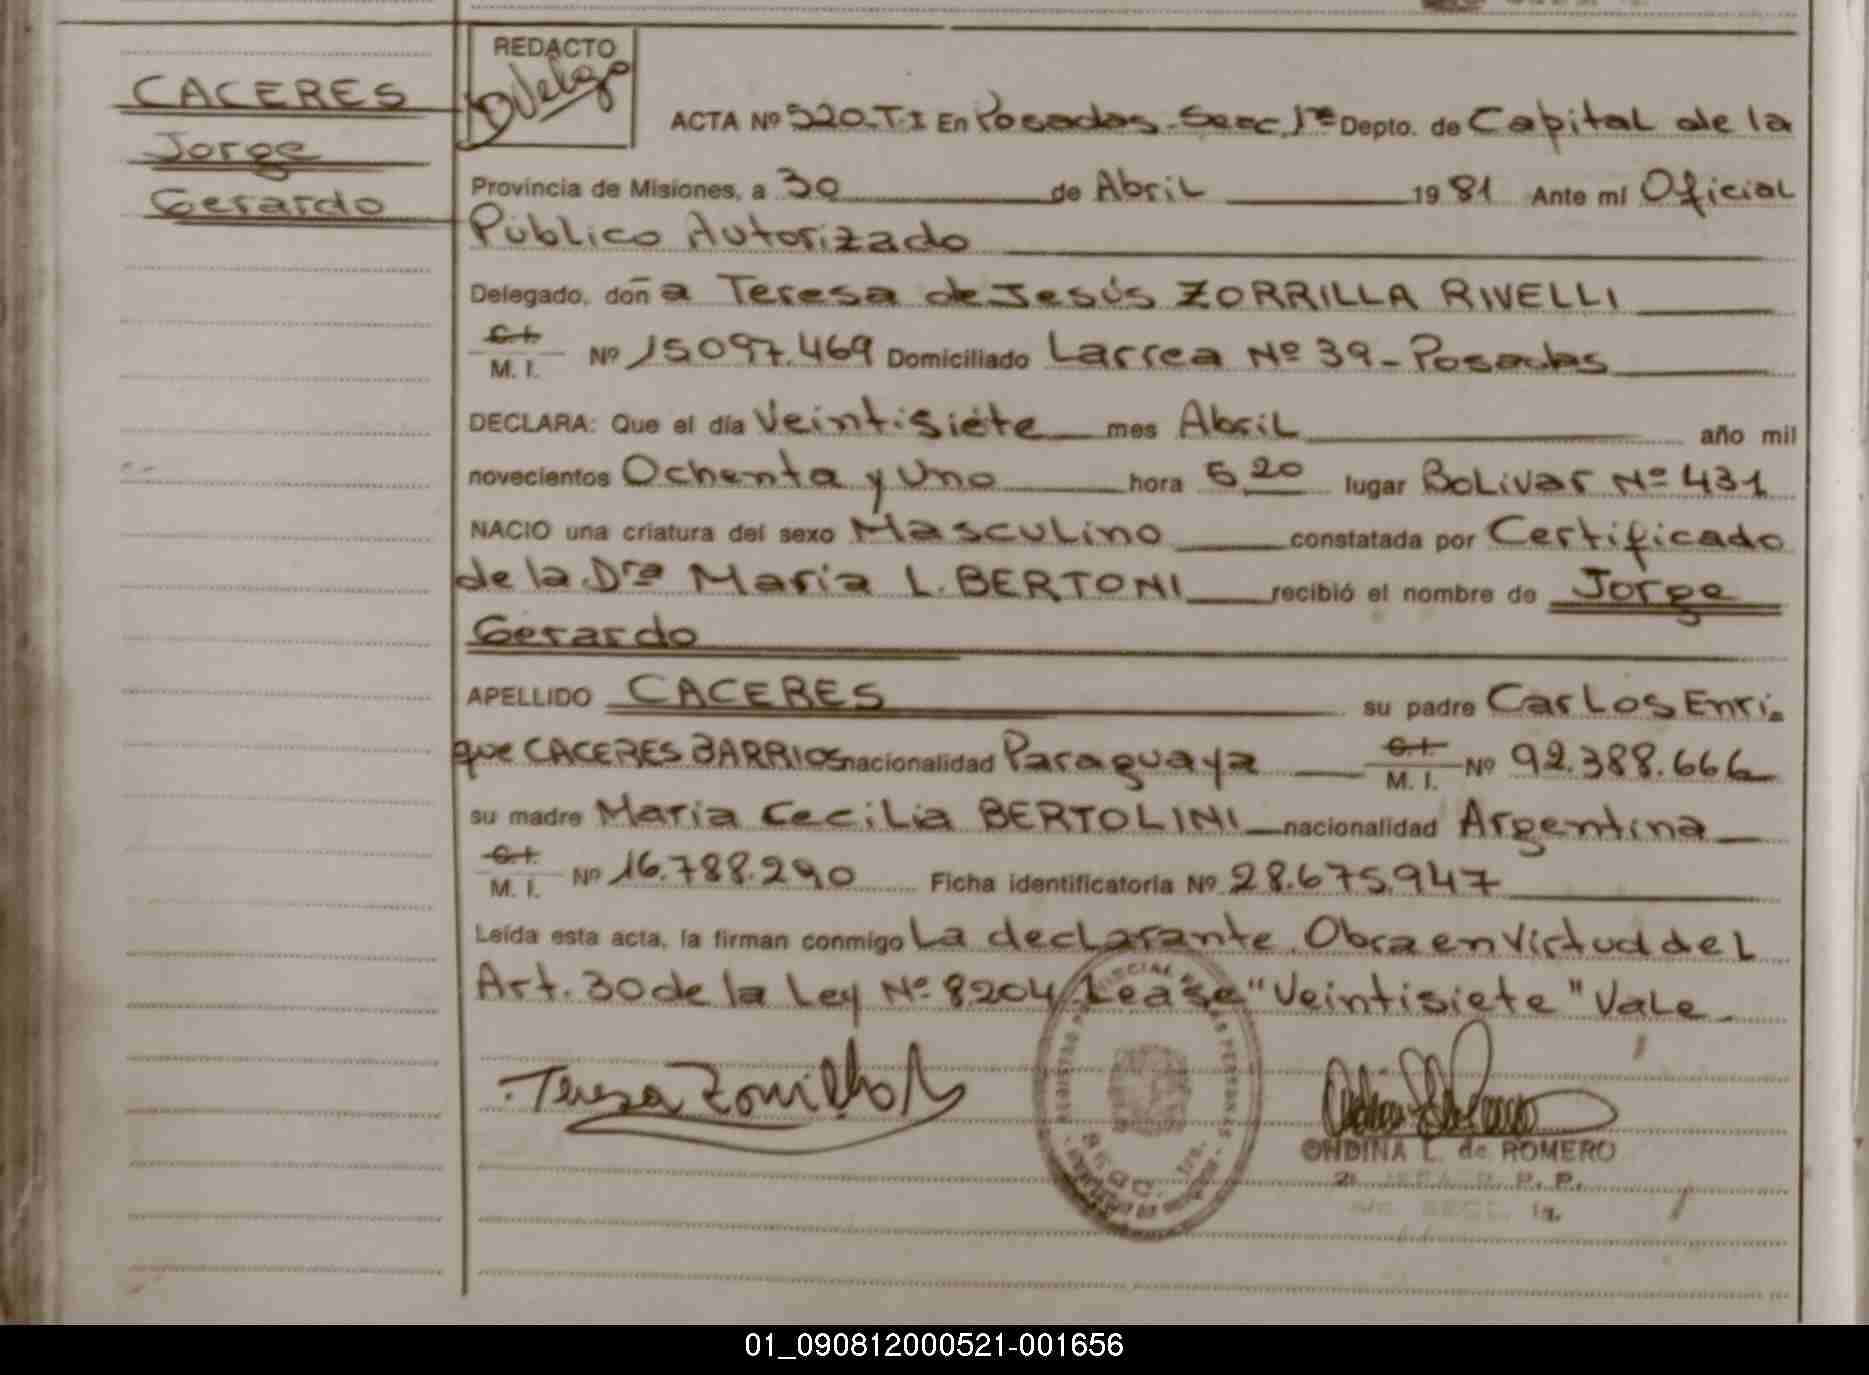 REDACTO
CACERES
Jorge
Gerardo
ACTA Nº 520.T.I En Posadas - Secc. 1ra Depto. de Capital de la
Provincia de Misiones, a 30 de Abril 1981 Ante mí Oficial
Público Autorizado
Delegado, doña Teresa de Jesús ZORRILLA RIVELLI
C.I.
M. I. Nº 15.097.469 Domiciliado Larrea Nº 39 - Posadas
DECLARA: Que el día Veintisiete mes Abril año mil
novecientos Ochenta y Uno hora 5 20 lugar Bolivar Nº 431
NACIO una criatura del sexo Masculino constatada por Certificado
de la Dra Maria L. BERTONI recibió el nombre de Jorge
Gerardo
APELLIDO CACERES su padre Carlos Enri-
que CACERES BARRIOS nacionalidad Paraguaya C.I. M. I. Nº 92.388.666
su madre Maria Cecilia BERTOLINI nacionalidad Argentina
C.I.
M. I. Nº 16.788.290 Ficha identificatoria Nº 28.675.947
Leída esta acta, la firman conmigo La declarante. Obra en Virtud del
Art. 30 de la Ley Nº 8204. Lease "Veintisiete" Vale.
Teresa Zorrilla
ONDINA L. de ROMERO
R. P. P.
SECC. 1a.
01_090812000521-001656